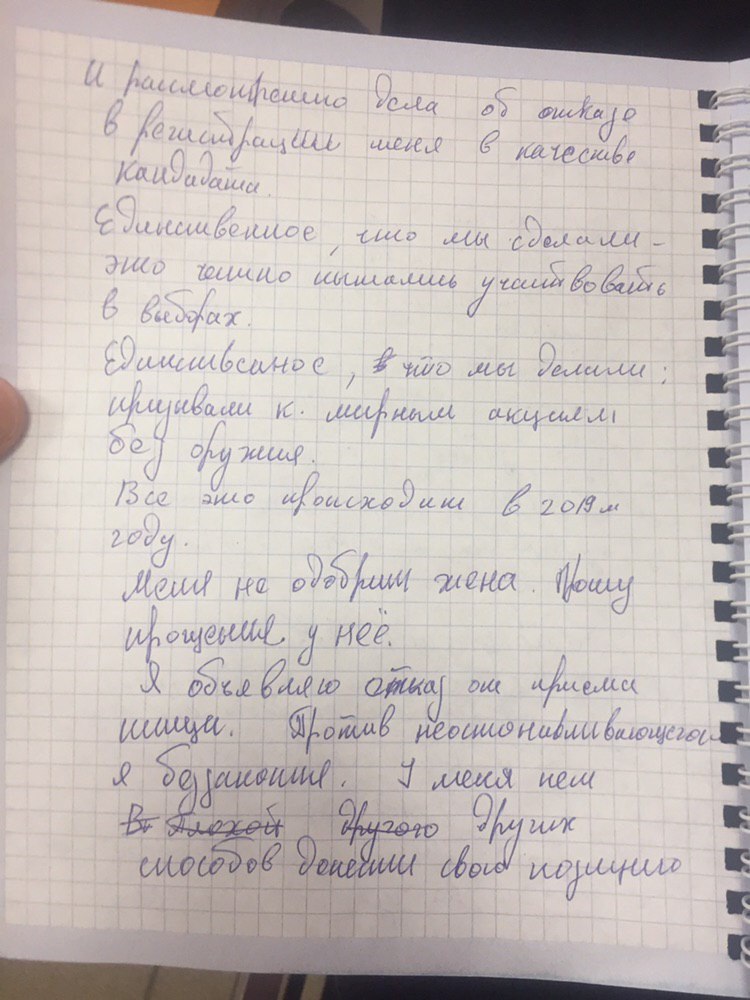 И рассмотрению дела об отказе
в регистрации меня в качестве
кандидата.
Единственное, что мы сделали -
это честно пытались участвовать
в выборах.
Единственное, что мы делали:
призывали к мирным акциям
без оружия.
Все это происходит в 2019м
году.
Меня не одобрит жена. Прошу
прощения у неё.
Я объявляю отказ от приема
пищи. Против неостонавливающего-
я беззакония. У меня нет
В. плохой другого других
способов донести свою позицию